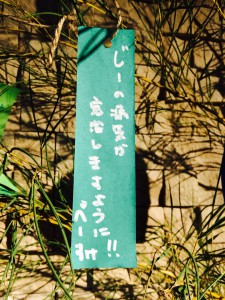 じーの病気が
完治しますように!!
ぺーすけ